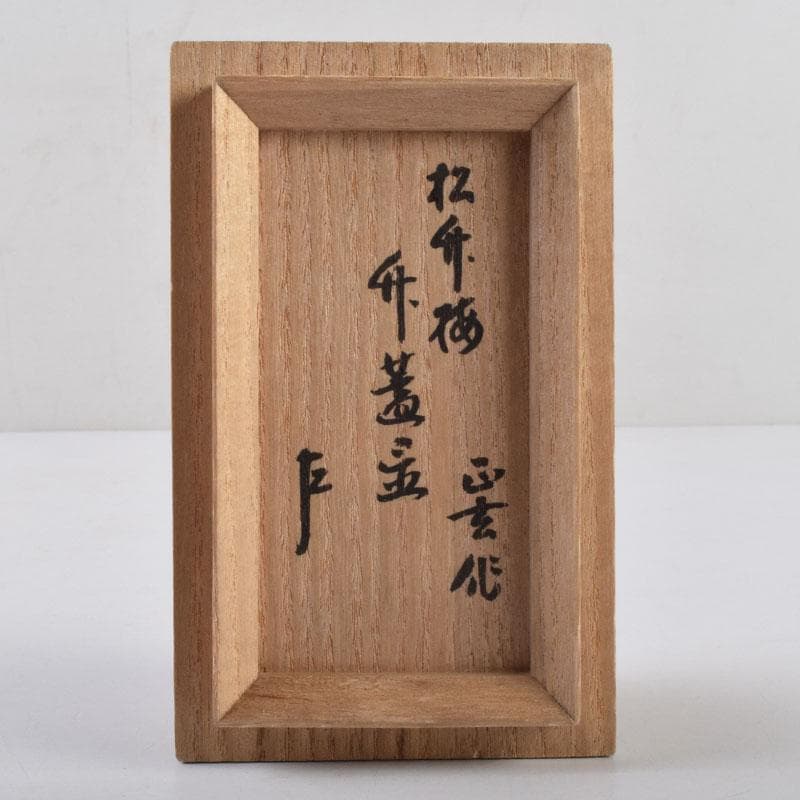 松竹梅
正玄作
竹蓋置
左